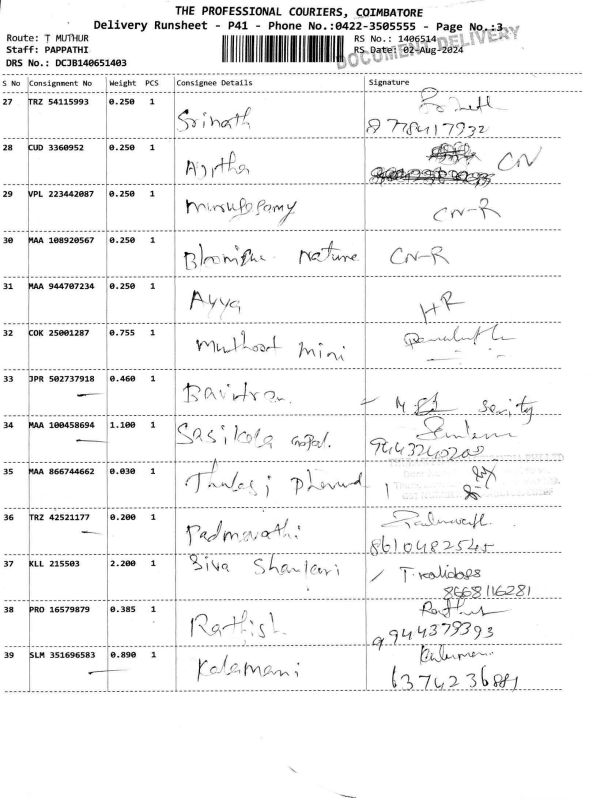 THE PROFESSIONAL COURIERS, COIMBATORE
Delivery Runsheet - P41 - Phone No.:0422-3505555 - Page No.:3
Route: T MUTHUR RS No.: 1406514
Staff: PAPPATHI RS Date: 02-Aug-2024
DOCUMENT DELIVERY
DRS No.: DCJB140651403
S No Consignment No Weight PCS Consignee Details Signature
27 TRZ 54115993 0.250 1
Srinath
28 CUD 3360952 0.250 1
CN
29 VPL 223442087 0.250 1
CN-R
30 MAA 108920567 0.250 1
Nature CN-R
31 MAA 944707234 0.250 1
Ayya HR
32 COK 25001287 0.755 1
Muthoot Mini
33 JPR 502737918 0.460 1
34 MAA 100458694 1.100 1
Sasikala Gopal.
35 MAA 866744662 0.030 1
Thulasi
36 TRZ 42521177 0.200 1
Padmavathi
8610482545
37 KLL 215503 2.200 1
Siva Shankari T. Kalidass
8668116281
38 PRO 16579879 0.385 1
Rathish
9944379393
39 SLM 351696583 0.890 1
Kalamani
6374236881